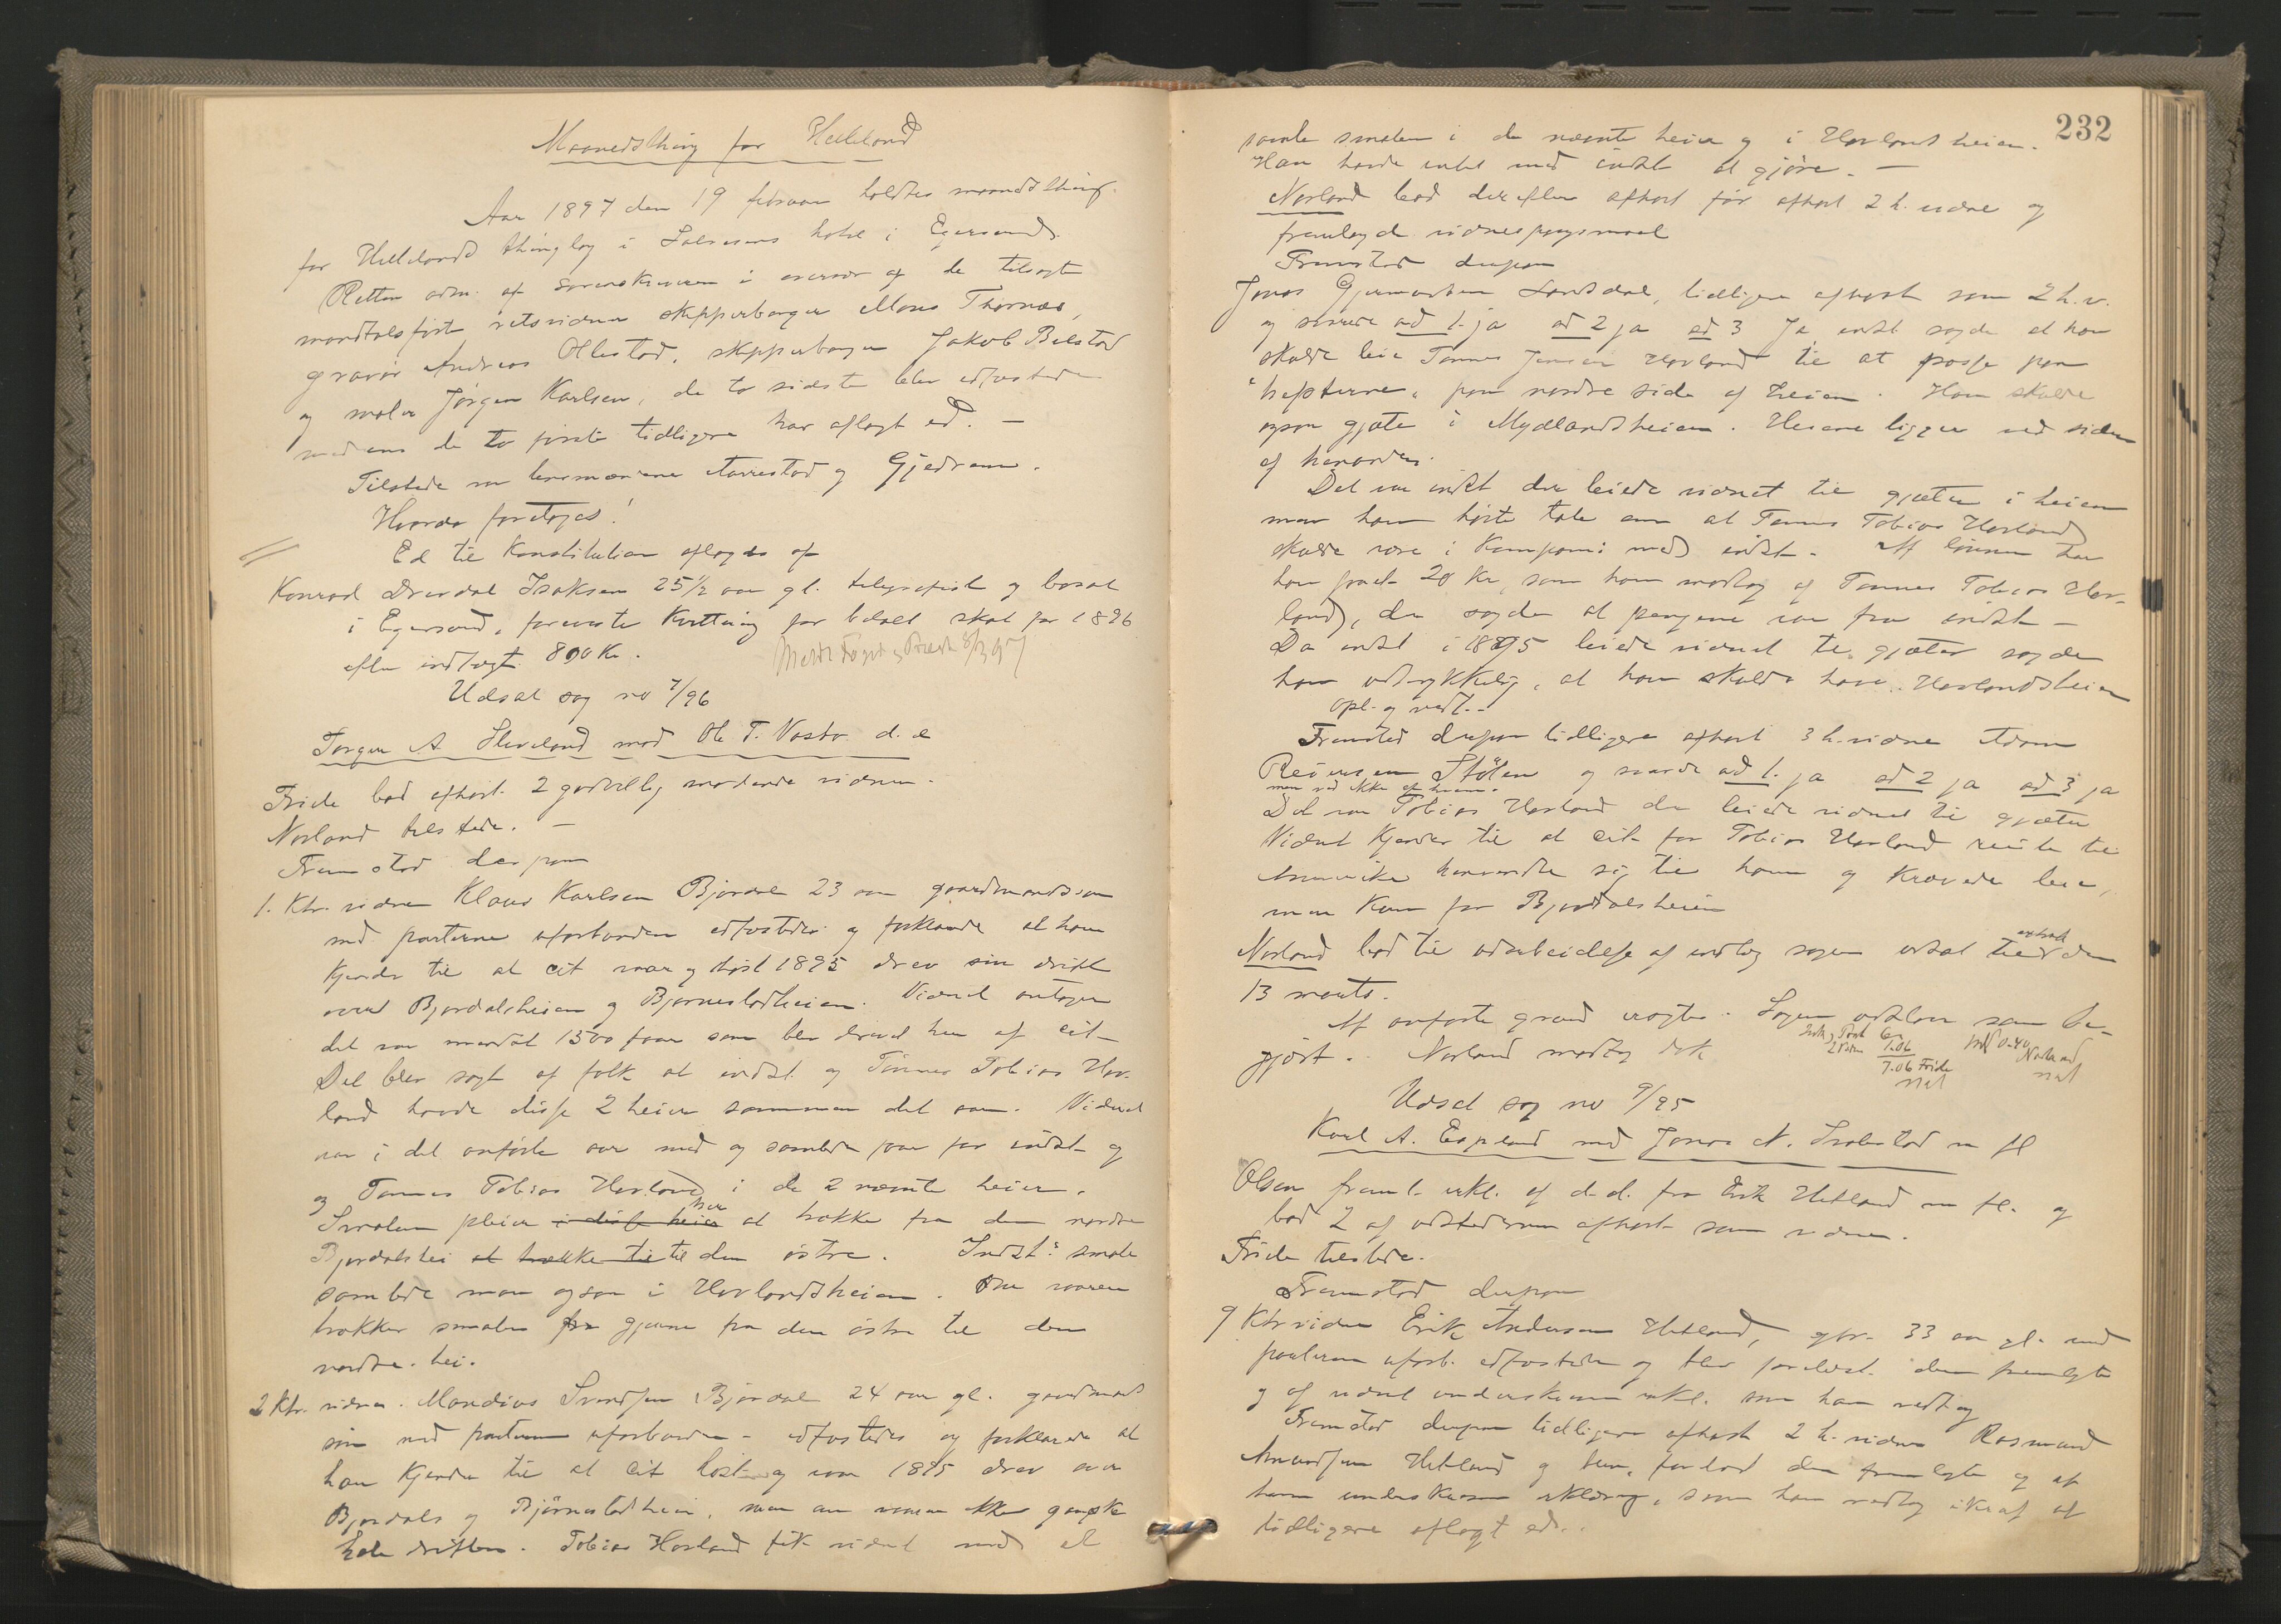 Maanedsthing for Helleland
Aar 1897 den 19 februar holdtes maanedsthing
for Hellelands thinglag i Salvesens hotel i Egersund.
Retten adm. af sorenskriveren i overvær af de tilsagte
mandtalsførte retsvidner skipperborger Mons Thornæs,
gravør Andreas Ollestad, skipperborger Jakob Bilstad
og maler Jörgen Karlsen, de to sidste blev edfæstede
medens de to första tidligere har aflagt ed. —
Tilstede var lensmændene Aarrestad og Gjedrem.
Hvorda foretoges!
Ed til Konstitution aflagdes af
Konrad Isaksen 25 1/2 aar gl. telegrafist og bosat
i Egersund, foreviste Kvittering for betalt skat for 1896
efter indtægt 800 Kr.
Udsat sag no 7/96
Torger A Sleveland mod Ole T. Vasbø d. e
Feide bad afhørt 2 godvillig mødende vidner.
Norland tilstede. —
Fremstod derpaa
1. Ktr. vidne Klaus Karlsen Bjordal 23 aar gaardmandssøn
med parterne uforbunden edfæstedes og forklarede at han
kjender til at cit. vaar og høst 1895 drev sin drift
over Bjordalsheien og Bjørnestadheien. Vidnet antager
det var mindst 1500 faar som blev drevet hen af cit.
Det blev sagt af folk at indst. og Tönnes Tobias Hov-
land havde disse 2 heier sammen det aar. Vidnet
var i det anførte aar med og samlede faar for indst. og
og Tønnes Tobias Hovland i de 2 nævnte heier.
Smalen pleier i disse heier her at trække fra den nordre
Bjordalshei at trække til til den östre. Indst:s smale
samlede man ogsaa i Hovlandsheien. Om vaaren
trækker smalen fra gjerne fra den östre til den
nordre hei.
2 Ktr. vidne. Mandius Svendsen Bjordal 24 aar gl. gaardmands
søn med parterne uforbunden – edfæstedes og forklarede at
han kjender til at cit høst og vaar 1895 drev over
Bjordals og Björnestadheien, men om vaaren ikke ganske
hele driften. Tobias Hovland fik vidnet med at
232
samle smalen i de nævnte heier og i Hovlandsheien.
Han havde intet med indst. at gjøre. —
Norland bad derefter afhørt før afhørt 2 h. vidne og
fremlagde vidnespørgsmaal
Fremstod derpaa
Jonas Gjermundsen Lonsdal, tidligere afhørt som 2 h. v.
og svarede ad 1. ja ad 2 ja ad 3 Ja indst. sagde at han
skulde leie Tønnes Jensen Hovland til at passe paa
"hefterne" paa nordre side af heien. Han skulde
ogsaa gjæte i Mydlandsheien. Heierne ligger ved siden
af hverandre.
Det var indst. der leiede vidnet til gjæter i heien
men han hørte tale om at Tønnes Tobias Hovland
skulde være i Kompani med indst. Af lønnen har
han faaet 20 Kr, som han modtog af Tønnes Tobias Hov-
land, der sagde at pengene var fra indst. —
Da indst. i 1895 leiede vidnet til gjæter sagde
han udtrykkelig, at han skulde have Hovlandsheien
Opl. og vedt. –
Fremstod derpaa tidligere afhørt 3 h. vidne Adam
Reiersen Stölen og svarede ad 1. ja ad 2 ja ad 3 ja
Det var Tobias Hovland der leiede vidnet til gjæter
Vidnet kjender til at cit. før Tobias Hovland reiste til
Amerika henvendte sig til ham og krævede leie,
men kun for Bjordalsheien
Norland bad til udarbeidelse af indlæg sagen udsat til den
13 marts.
Af anførte grund vægter. Sagen udsattes som be-
gjært. Norland modtog dok.
Udsat sag no 9/95
Karl A. Espeland mod Jonas N. Svalestad m fl
Olsen freml. erkl. af d. d. fra Erik Hetland m fl. og
bad 2 af udstederne afhørt som vidner.
Feide tilstede.
Fremstod derpaa
9 Ktr vidne Erik Andersen Hetland, gbr. 33 aar gl. med
parterne uforb. edfæstedes og blev forelæst den fremlagte
og af vidnet underskrevne erkl. som han vedtog
Fremstod derpaa tidligere afhørt 2 h. vidne Rasmund
Amundsen Hetland og blev forelæst den fremlagte og af
ham underskrevne erklæring, som han vedtog i kraft af
tidligere aflagt ed.